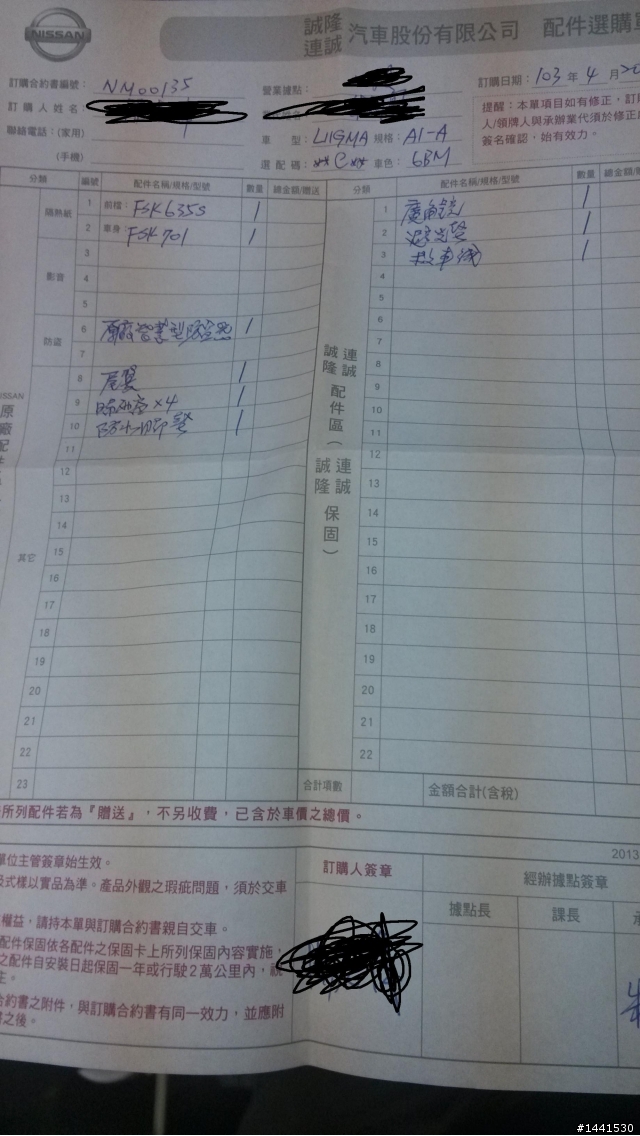 NISSAN
誠隆
連誠 汽車股份有限公司 配件選購單
訂購合約書編號： NM00135
營業據點：
訂購日期：103年4月20
訂購人姓名
聯絡電話：(家用)
(手機)
車 型：LIIGMA 規格：A1-A
選配碼：**C** 車色：6BM
提醒：本單項目如有修正，訂
人/領牌人與承辦業代須於修正
簽名確認，始有效力。
分類 編號 配件名稱/規格/型號 數量 總金額/贈送
隔熱紙
1 前檔：FSK635s 1
2 車身：FSK701 1
影音
3
4
5
防盜
6 1
7
其它
8 尾翼 1
9 晴雨窗x4 1
10 1
11
12
13
14
15
16
17
18
19
20
21
22
23
NISSAN
原廠配件
連誠
誠隆
配件區（
連誠
誠隆
保固）
分類 編號 配件名稱/規格/型號 數量 總金額/
1 廣角鏡 1
2 避光墊 1
3 救車線 1
4
5
6
7
8
9
10
11
12
13
14
15
16
17
18
19
20
21
22
合計項數
金額合計(含稅)
所列配件若為『贈送』，不另收費，已含於車價之總價。
2013
單位主管簽章始生效。
及式樣以實品為準。產品外觀之瑕疵問題，須於交車
權益，請持本單與訂購合約書親自交車。
配件保固依各配件之保固卡上所列保固內容實施，
之配件自安裝日起保固一年或行駛2萬公里內，視
主。
合約書之附件，與訂購合約書有同一效力，並應附
書之後。
訂購人簽章
經辦據點簽章
據點長
課長
承
#1441530